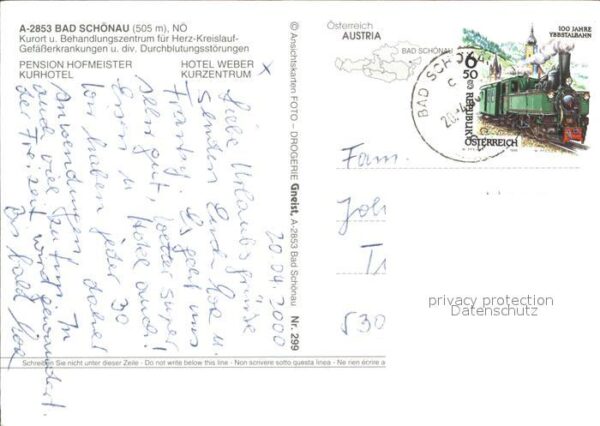 A-2853 BAD SCHÖNAU (505 m), NÖ
Kurort u. Behandlungszentrum für Herz-Kreislauf-
Gefäßerkrankungen u. div. Durchblutungsstörungen
PENSION HOFMEISTER HOTEL WEBER
KURHOTEL KURZENTRUM
x
20.04.2000
Liebe Urlaubsgrüße
senden Euch u.
Franky. Es geht uns
sehr gut, Wetter super
Essen u. Hotel auch!
Wir haben jeder 30
Anwendungen, daher
auch viel zu tun. In
der Freizeit wird gewandert.
Bis bald
© Ansichtskarten FOTO - DROGERIE Gneist, A-2853 Bad Schönau Nr. 299
Schreiben Sie nicht unter dieser Zeile - Do not write below this line - Non scrivere sotto questa linea - Ne rien écrire a
Österreich
AUSTRIA
BAD SCHÖNAU
BAD SCHÖNAU
c
20.-4.
100 JAHRE
YBBSTALBAHN
6
50
S
REPUBLIK
ÖSTERREICH
Fam.
Joh
Tr
530
privacy protection
Datenschutz